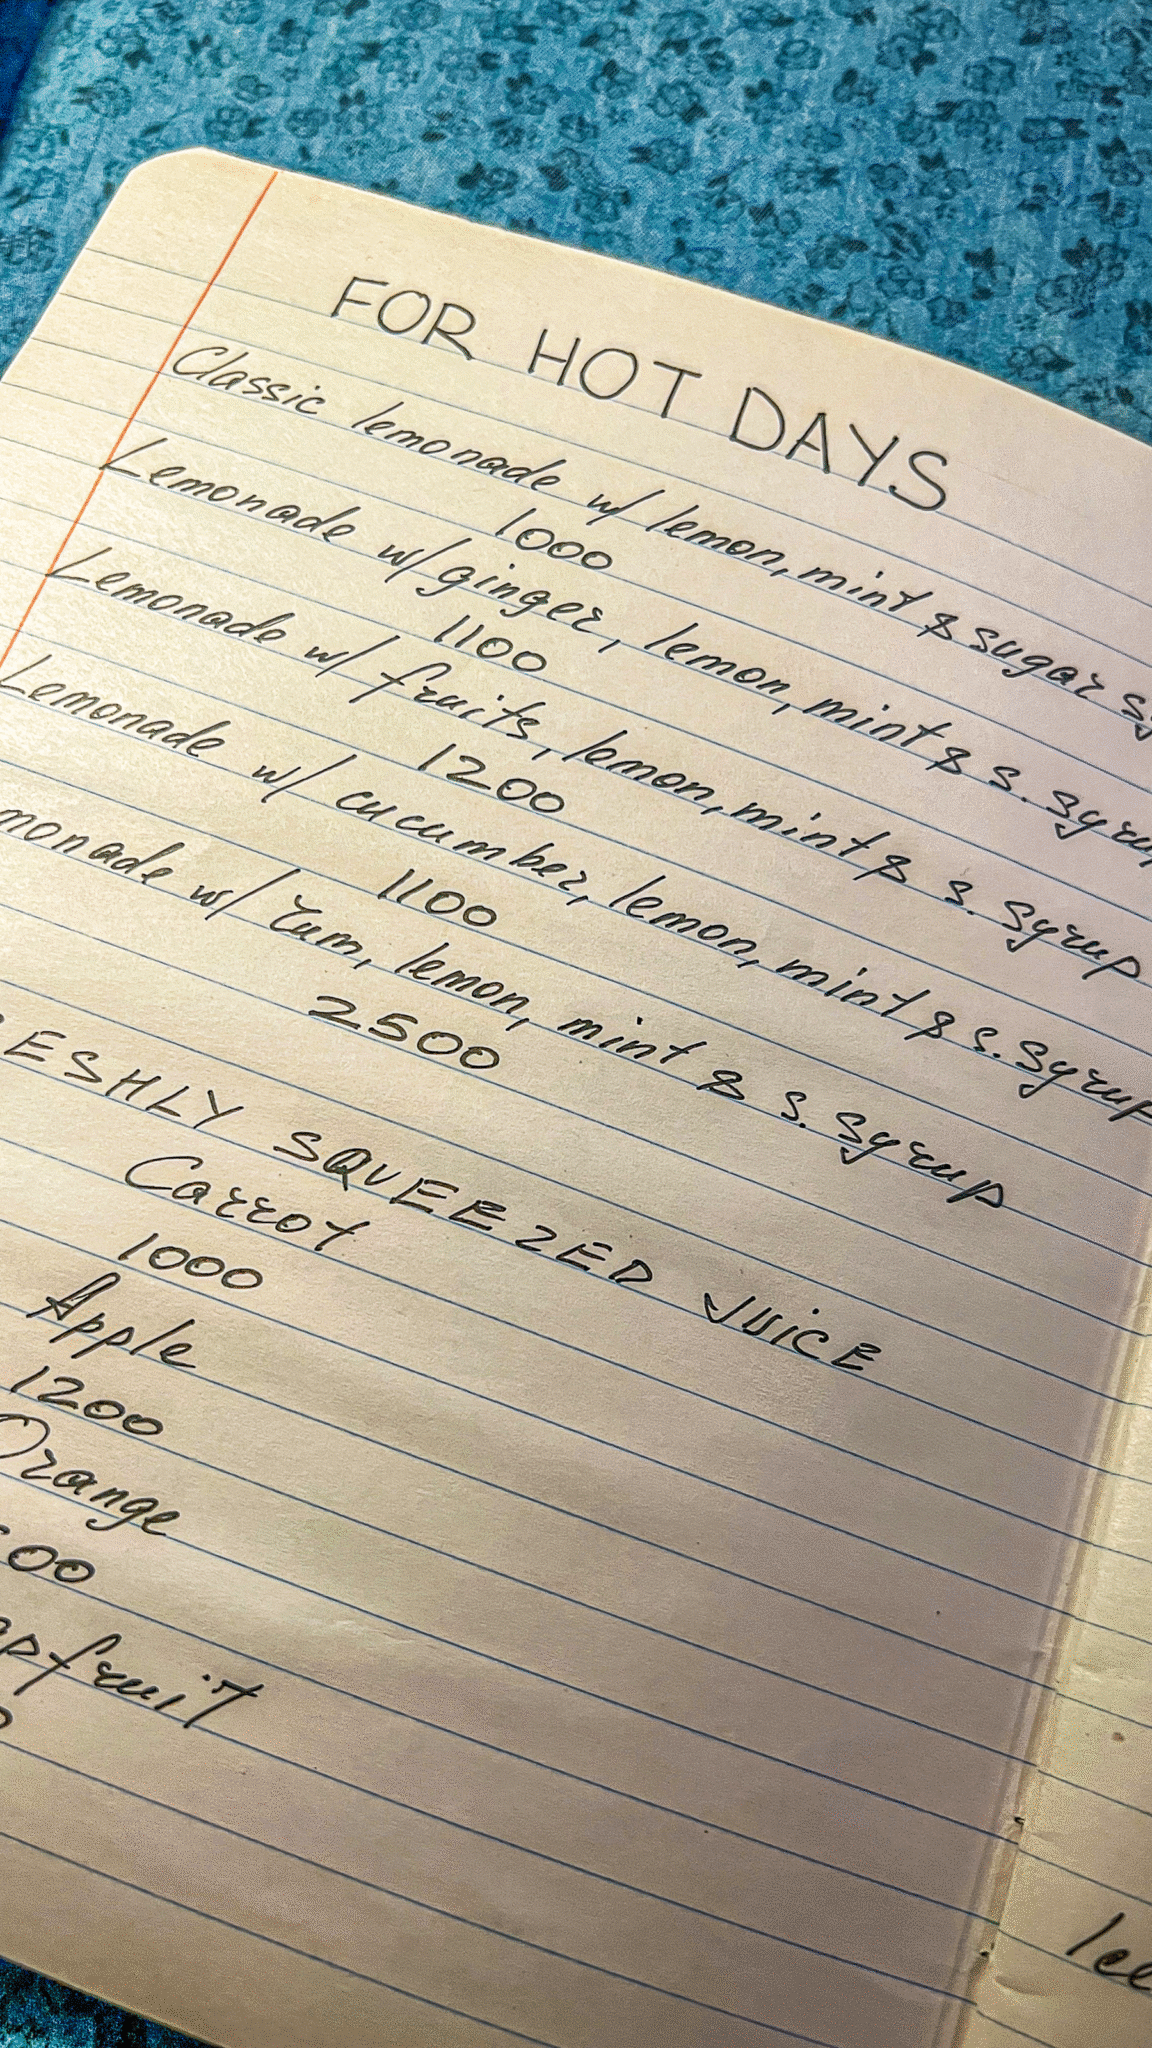 FOR HOT DAYS
Classic lemonade w/ lemon, mint & sugar
1000
Lemonade w/ ginger, lemon, mint & s. syrup
1100
Lemonade w/ fruits, lemon, mint & s. syrup
1200
Lemonade w/ cucumber, lemon, mint & s. syrup
1100
monade w/ rum, lemon, mint & s. syrup
2500
ESHLY SQUEEZED JUICE
Carrot
1000
Apple
1200
Orange
00
apfruit